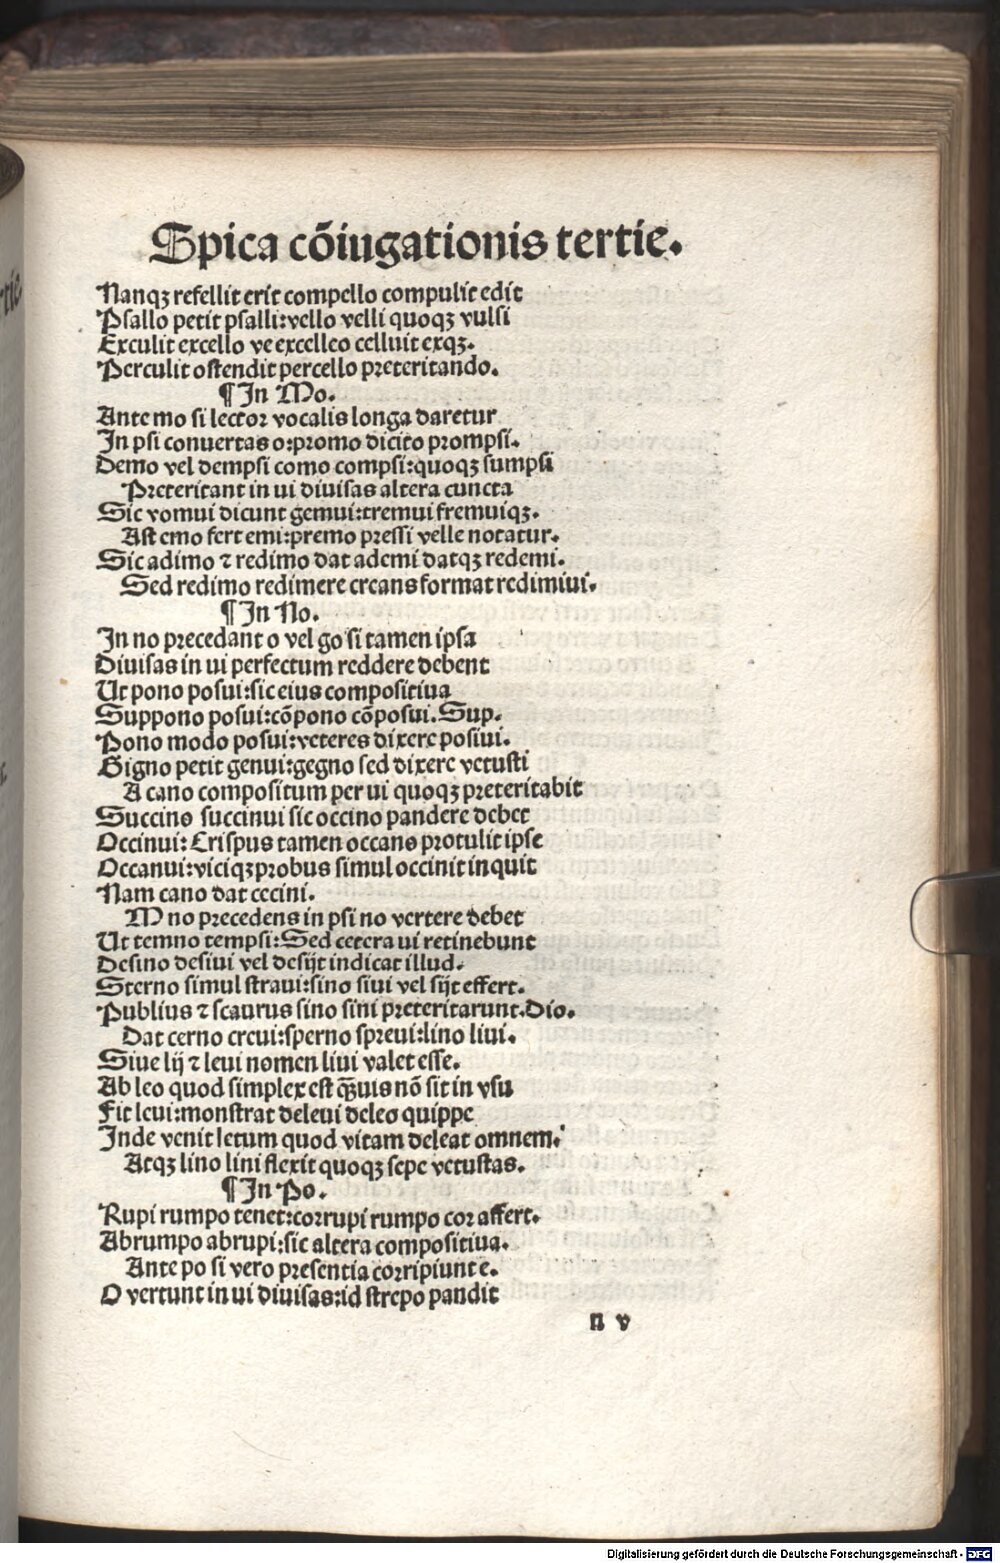 Spica cõiugationis tertie.
Nanqꝫ refellit erit compello compulit edit
Psallo petit psalli:vello velli quoqꝫ vulsi
Exculit excello ve excelleo celluit exqꝫ.
Perculit ostendit percello preteritando.
¶ In Mo.
Ante mo si lector vocalis longa daretur
In psi conuertas o:promo dicito prompsi.
Demo vel dempsi como compsi:quoqꝫ sumpsi
Preteritant in ui diuisas altera cuncta
Sic vomui dicunt gemui:tremui fremuiqꝫ.
Ast emo fert emi:premo pressi velle notatur.
Sic adimo ⁊ redimo dat ademi datqꝫ redemi.
Sed redimo redimere creans format redimiui.
¶ In No.
In no precedant o vel go si tamen ipsa
Diuisas in ui perfectum reddere debent
Ut pono posui:sic eius compositiua
Suppono posui:cõpono cõposui. Sup.
Pono modo posui:veteres dixere posiui.
Gigno petit genui:gegno sed dixere vetusti
A cano compositum per ui quoqꝫ preteritabit
Succino succinui sic occino pandere debet
Occinui: Crispus tamen occano protulit ipse
Occanui:viciqꝫ probus simul occinit inquit
Nam cano dat cecini.
M no precedens in psi no vertere debet
Ut temno tempsi:Sed cetera ui retinebunt
Desino desiui vel desijt indicat illud.
Sterno simul straui:sino siui vel sijt effert.
Publius ⁊ scaurus sino sini preteritarunt. Dio.
Dat cerno creui:sperno spreui:lino liui.
Siue lij ⁊ leui nomen liui valet esse.
Ab leo quod simplex est q̃uis nõ sit in vsu
Fit leui:monstrat deleui deleo quippe
Inde venit letum quod vitam deleat omnem.
Atqꝫ lino lini flexit quoqꝫ sepe vetustas.
¶ In Po.
Rupi rumpo tenet:corrupi rumpo cor affert.
Abrumpo abrupi:sic altera compositiua.
Ante po si vero presentia corripiunt e.
O vertunt in ui diuisas:id strepo pandit
n v
Digitalisierung gefördert durch die Deutsche Forschungsgemeinschaft - DFG